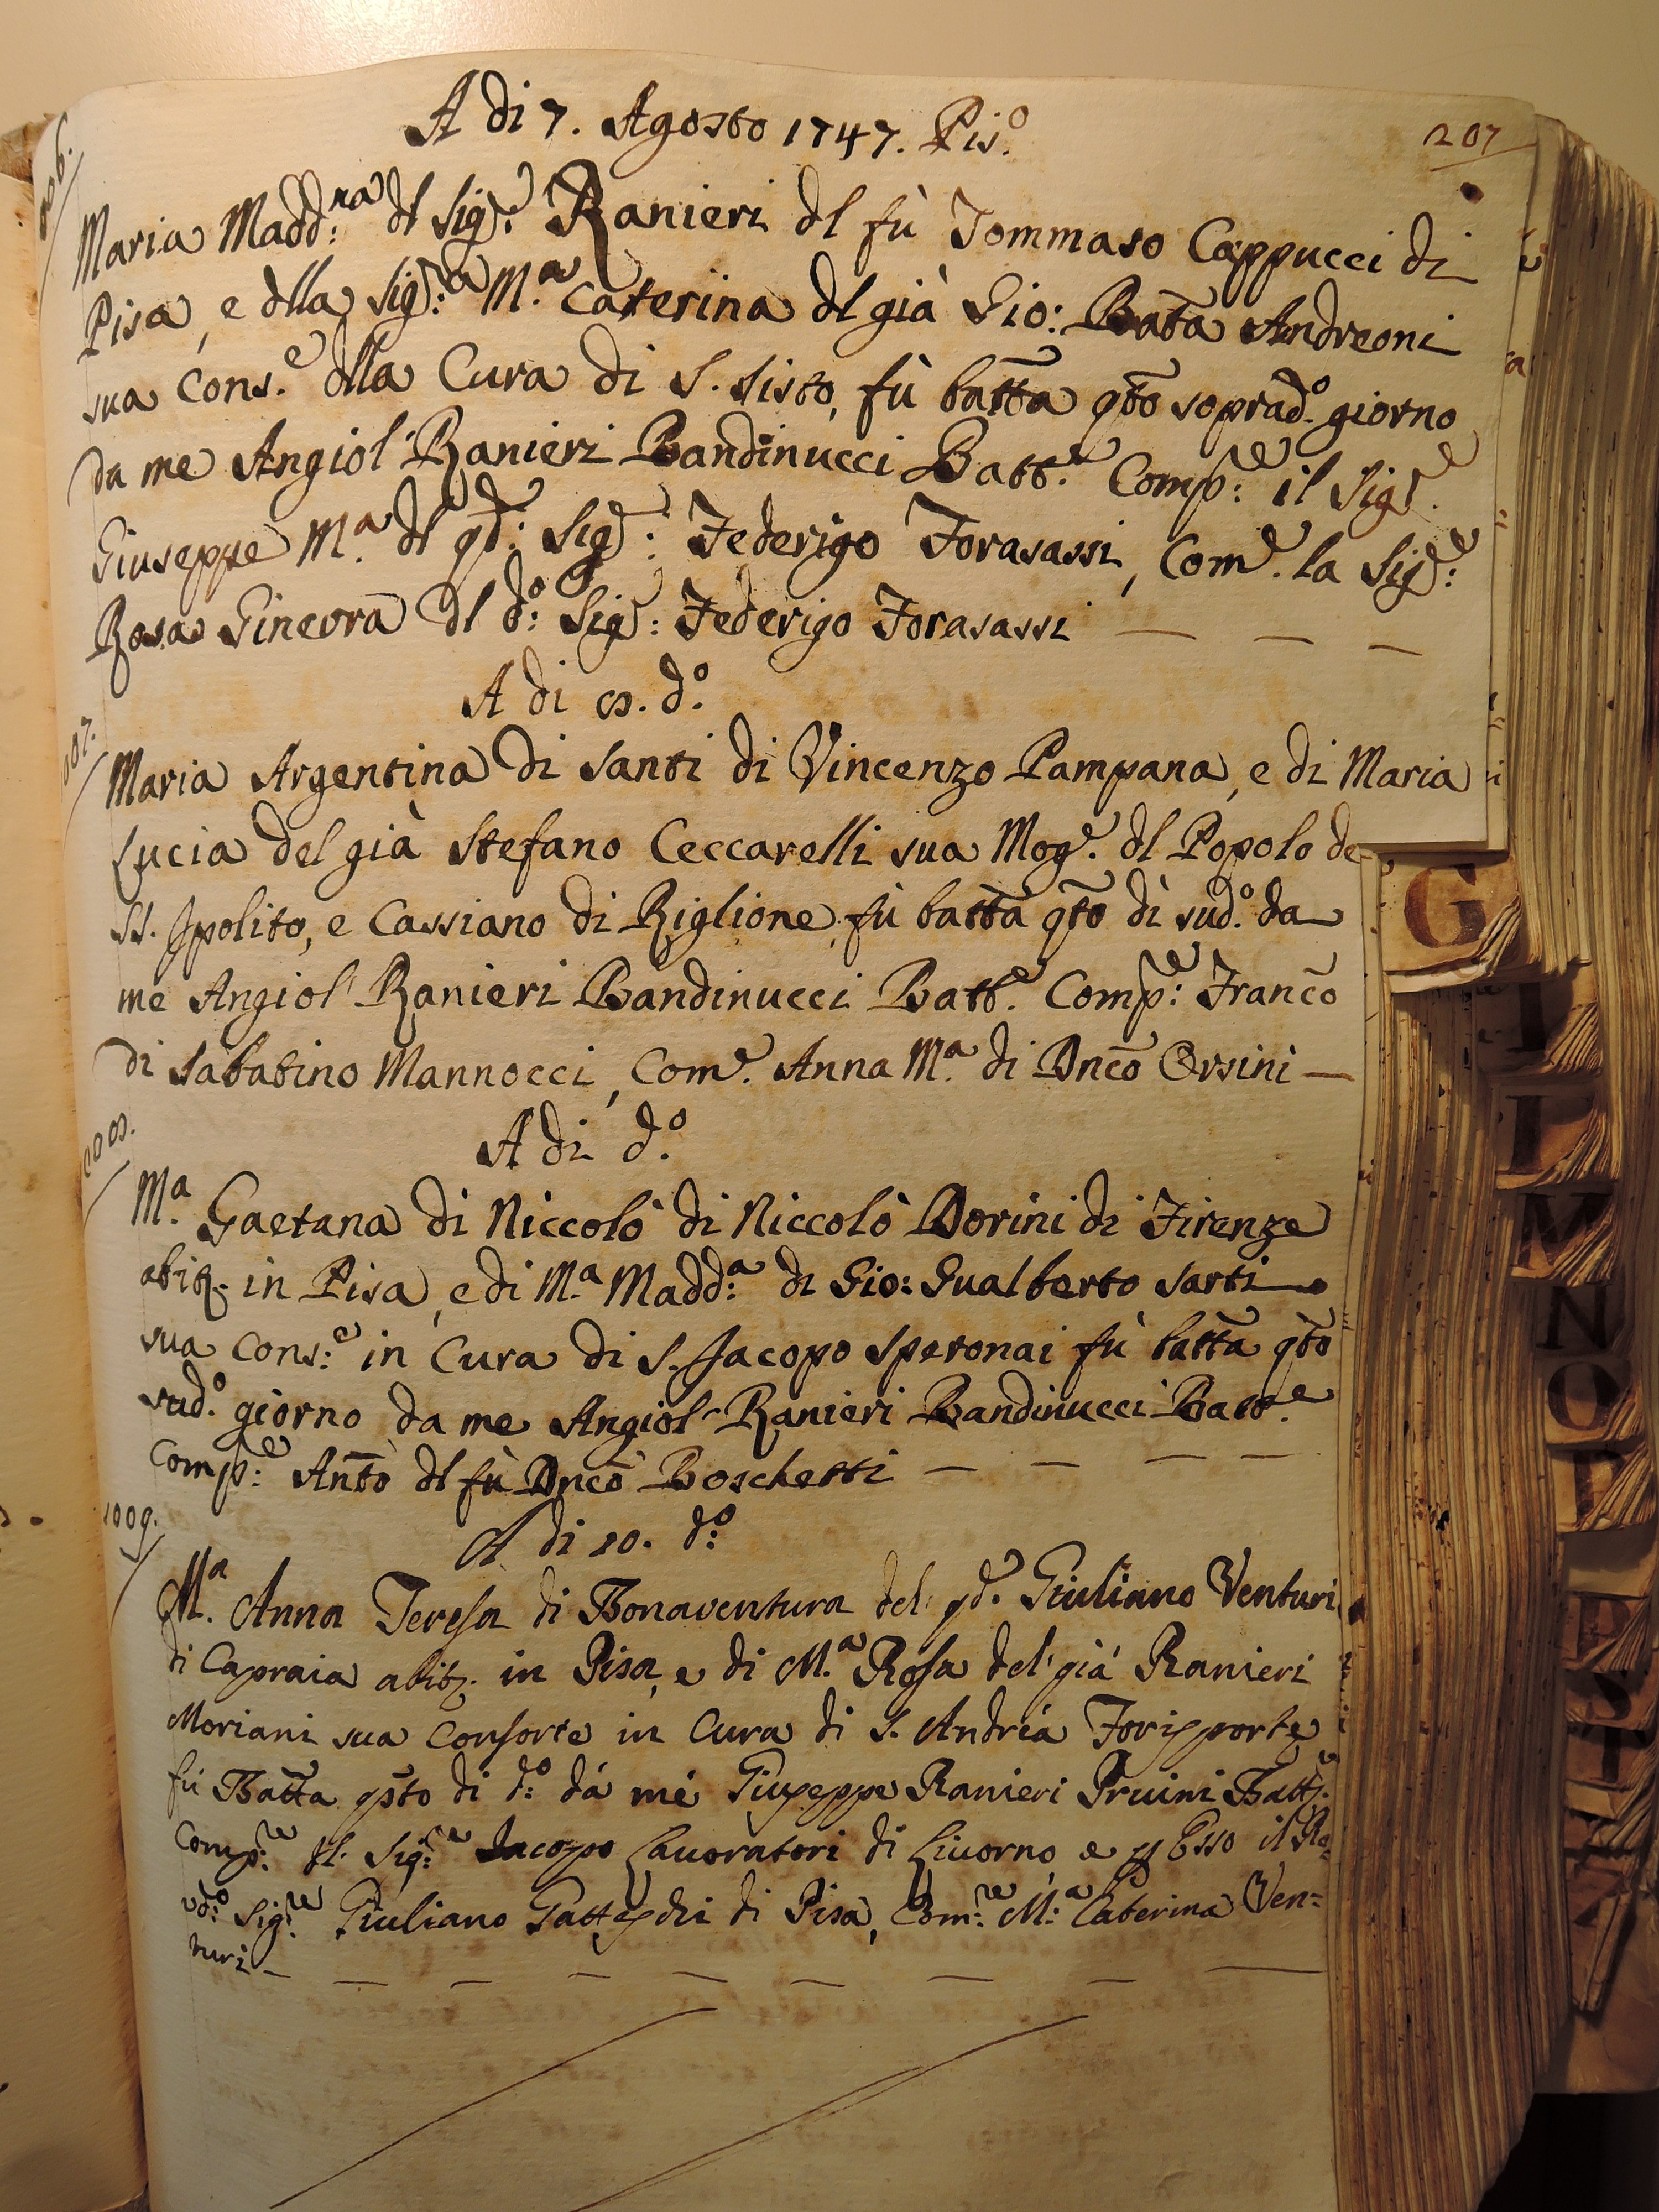 A di 7. Agosto 1747. Pis.o
207
Maria Madd:na dl Sig.r Ranieri dl fù Tommaso Cappucci di
Pisa, e dlla Sig:ra M.a Caterina dl già Gio: Batā Andreoni
sua Cons.e dlla Cura di S. Sisto, fù battā qto soprad.o giorno
da me Angiol Ranieri Bandinucci Batt.e Comp:e il Sig.re
Giuseppe M.a dl qd: Sig.r: Federigo Forasassi, Com.e la Sig:re
Rosa Ginevra dl d:o Sig.r: Federigo Forasassi
A di 8. d.o
007.
Maria Argentina di Santi di Vincenzo Pampana, e di Maria
Lucia del già Stefano Ceccarelli sua Mog.e dl Popolo de
SS. Ipolito, e Cassiano di Riglione, fù battā qto dì sud.o da
me Angiol Ranieri Bandinucci Batt.e Comp:e Francō
di Sabatino Mannocci, Com.e Anna M.a di Dncō Orsini
A di d.o
M.a Gaetana di Niccolò di Niccolò Dorini di Firenze
abit. in Pisa, e di M.a Madd:a di Gio: Gualberto Sarti
sua Cons:e in Cura di S. Jacopo Speronai fù battā qto
sud.o giorno da me Angiol Ranieri Bandinucci Batt.e
Comp:e Antō dl fù Dncō Boschetti
1009.
A di 10. d:o
M.a Anna Teresa di Bonaventura del qd. Giuliano Venturi
di Capraia abit. in Pisa, e di M.a Rosa del già Ranieri
Moriani sua Consorte in Cura di S. Andrea Forisporte
fù Battā qsto di d:o dá mé Giuseppe Ranieri Pruini Batt.e
Comp:re Il Sig:re Jacopo Lavoratori di Livorno, e p Esso il
Sig:re Giuliano Gatteschi di Pisa, Com:re M:a Caterina Ven=
turi